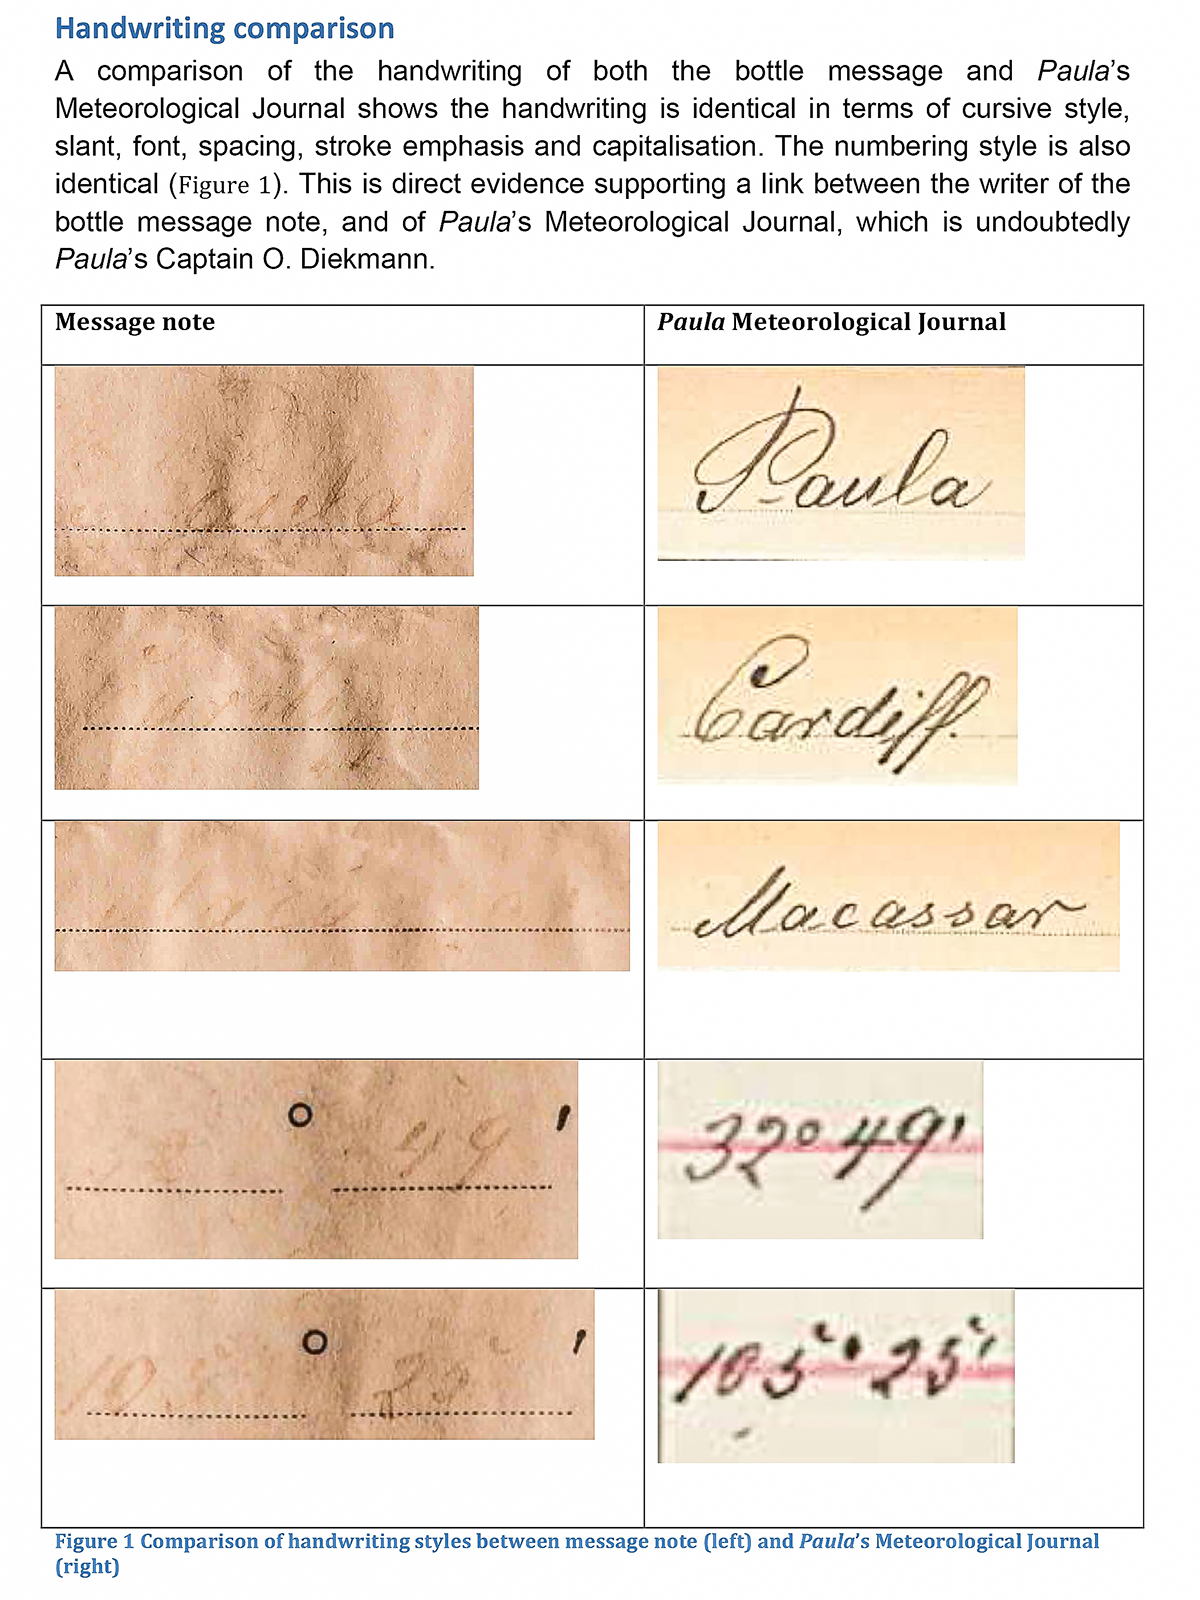 Handwriting comparison
A comparison of the handwriting of both the bottle message and Paula's
Meteorological Journal shows the handwriting is identical in terms of cursive style,
slant, font, spacing, stroke emphasis and capitalisation. The numbering style is also
identical (Figure 1). This is direct evidence supporting a link between the writer of the
bottle message note, and of Paula's Meteorological Journal, which is undoubtedly
Paula's Captain O. Diekmann.
Message note
Paula Meteorological Journal
Paula
Cardiff.
Macassar
° 49 '
32° 49'
105 ° 25 '
105° 25'
Figure 1 Comparison of handwriting styles between message note (left) and Paula's Meteorological Journal
(right)